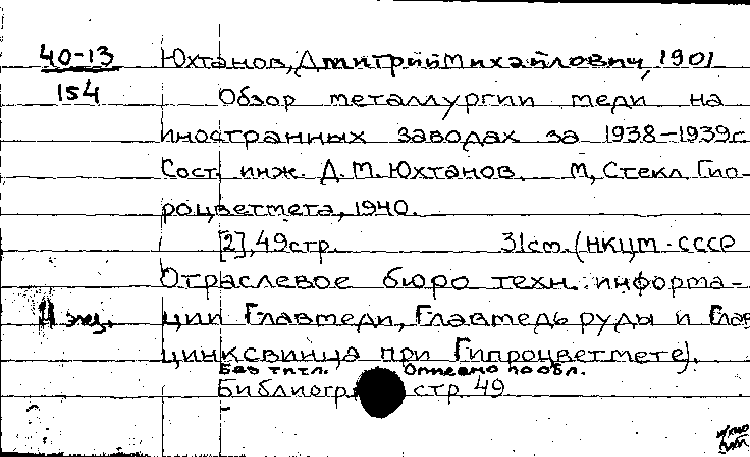 40-13 Юхтанов, Дмитрий Михайлович, 1901
154 Обзор металлургии меди на
иностранных заводах за 1938-1939г.
Сост. инж. Д.М. Юхтанов. М, Стекл. Гип-
роцветмета, 1940.
[2], 49стр. 31см. (НКЦМ-СССР
Отраслевое бюро техн. информа-
ции Главмеди, Главмедьруды и Глав
цинксвинца при Гипроцветмете).
Без титл. Описано по обл.
Библиогр. стр. 49